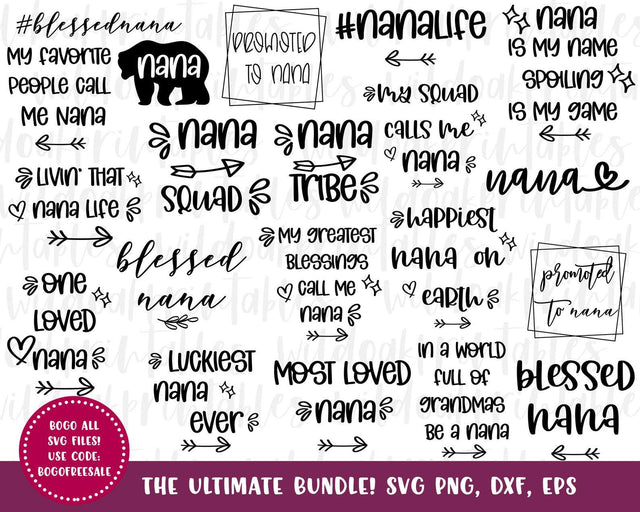 #blessednana
MY FAVORITE
PEOPLE CALL
ME NANA
nana
PROMOTED
TO NANA
#NANALIFE
NANA
IS MY NAME
SPOILING
IS MY GAME
MY SQUAD
CALLS ME
NANA
NANA
SQUAD
NANA
TRIBE
nana
LIVIN' THAT
NANA LIFE
blessed
nana
MY GREATEST
BLESSINGS
CALL ME
NANA
HAPPIEST
NANA ON
EARTH
promoted
to nana
ONE
LOVED
NANA
LUCKIEST
NANA
EVER
MOST LOVED
NANA
IN A WORLD
FULL OF
GRANDMAS
BE A NANA
BLESSED
NANA
BOGO ALL
SVG FILES!
USE CODE:
BOGOFREESALE
THE ULTIMATE BUNDLE! SVG PNG, DXF, EPS
wildoakprintables